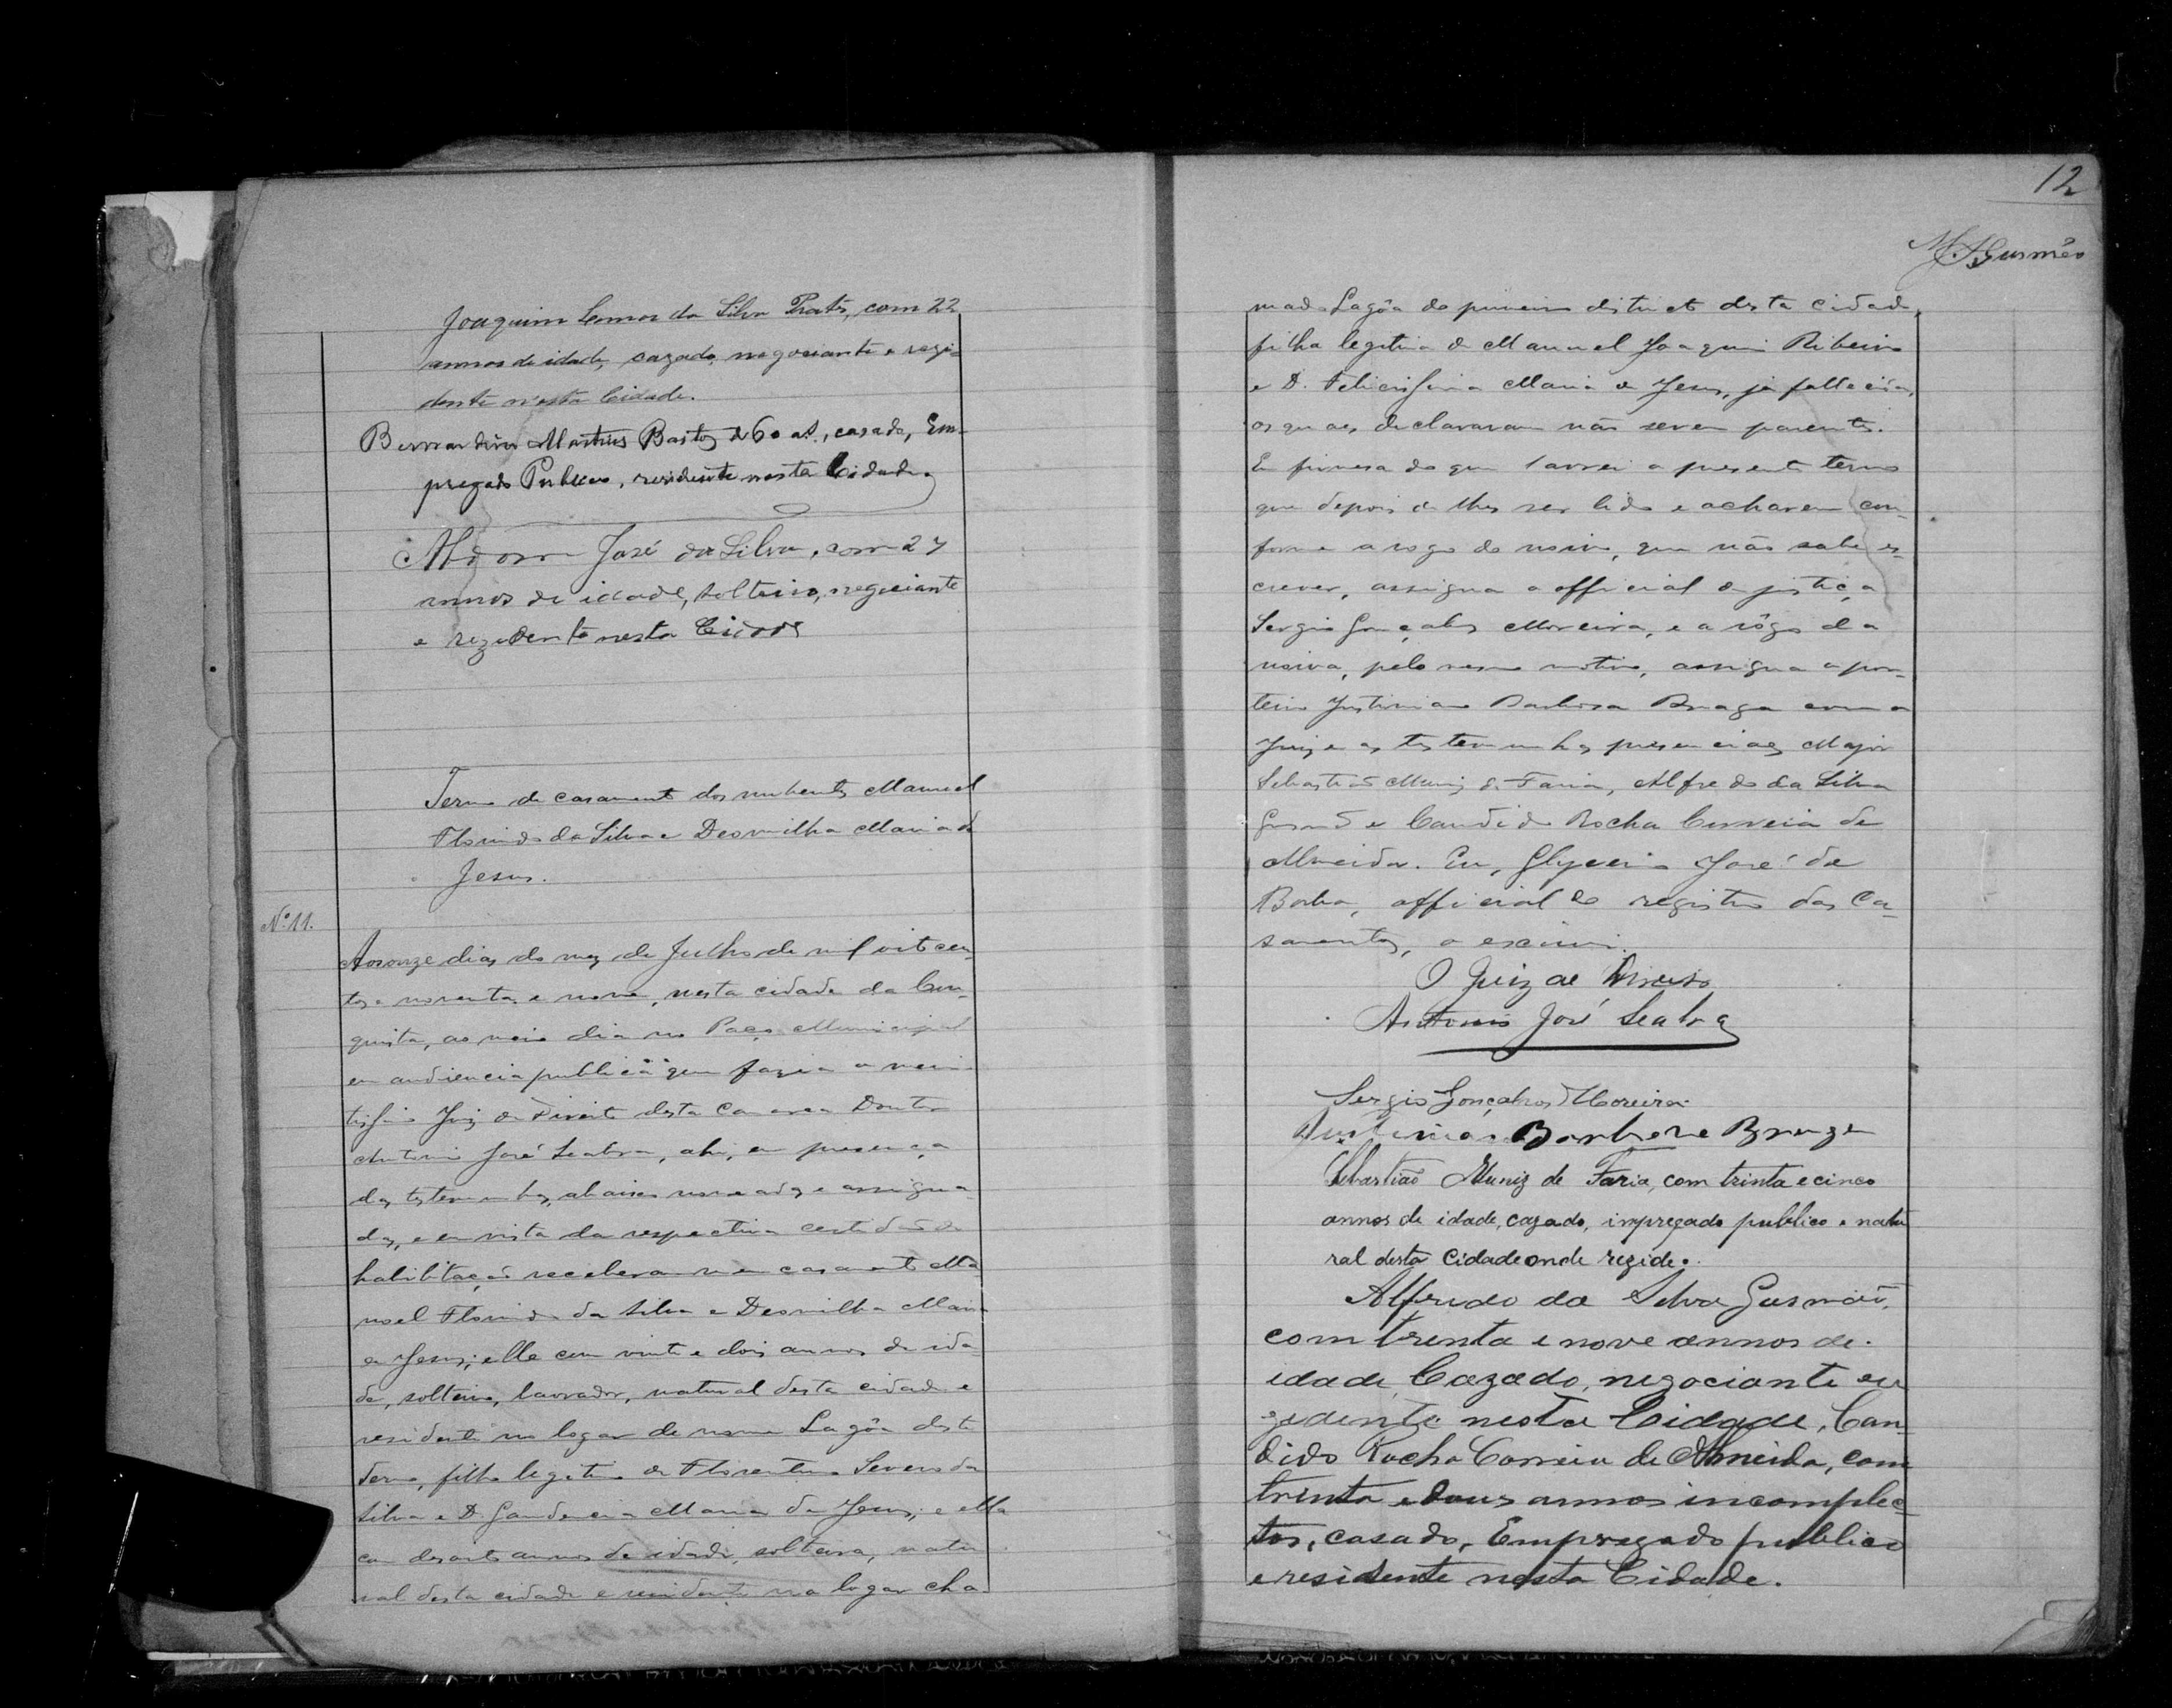 Joaquim Lemos da Silva Prates, com 22
annos de idade, cazado, negociante e rezi-
dente n'esta Cidade.
Bernardino Martins Bastos de 60 as., casado, Em-
pregado Publico, residente nesta Cidade
José da Silva, com 27
annos de idade, solteiro, negociante
e rezidente nesta Cidade
Termo de casamento dos nubentes Manuel
Florindo da Silva e Deomilha Maria de
Jesus.
Nº 11.
Aos onze dias do mez de Julho de mil oitocen-
tos e noventa e nove, nesta cidade da Con-
quista, ao meio dia no Paço Municipal
em audiencia publica que fazia o meri-
tissimo Juiz de Direito desta Comarca Doutor
Antonio José Seabra, ahi, em presença
das testemunhas, abaixo nomeadas e assigna-
das, e em vista da respectiva certidão de
habilitação receberam-se em casamento Ma-
noel Florindo da Silva e Deomilha Maria
de Jesus; elle com vinte e dois annos de ida-
de, solteiro, lavrador, natural desta cidade e
residente no logar de nome Lagôa deste
termo, filho legitimo de Florentino Severo da
Silva e D. Gaudencia Maria de Jesus; e ella
com desoito annos de idade, solteira, natu-
ral desta cidade e residente no logar cha-
12
M. F. Gusmão
mado Lagôa do primeiro districto desta cidade,
filha legitima de Manuel Joaquim Ribeiro
e D. Felicissima Maria de Jesus, já fallecida,
os quaes declararam não serem parentes.
Em firmesa do que lavrei o presente termo
que depois de lhes ser lido e acharem con-
forme a rogo do noivo, que não sabe es-
crever, assigna o official de justiça
Sergio Gonçalves Moreira, e a rôgo da
noiva, pelo mesmo motivo, assigna o por-
teiro Justiniano Barbosa Braga com o
Juiz e as testemunhas presenciaes Major
Sebastião Muniz de Faria, Alfredo da Silva
Gusmão e Candido Rocha Correia de
Almeida. Eu, Glycerio José de
Borba, official do registro dos Ca-
samentos, o escrevi.
O Juiz de Direito
Antonio José Seabra
Sergio Gonçalves Moreira
Justiniano Barbosa Braga
Sebastião Muniz de Faria, com trinta e cinco
annos de idade, cazado, impregado publico e natu
ral desta Cidade onde rezide.
Alfredo da Silva Gusmão,
com trenta e nove annos de
idade Cazado, negociante e re
zedente nesta Cidade, Can-
dido Rocha Correia de Almeida, com
trinta e dous annos incomplec-
tos, casado, Empregado publico
e residente nesta Cidade.